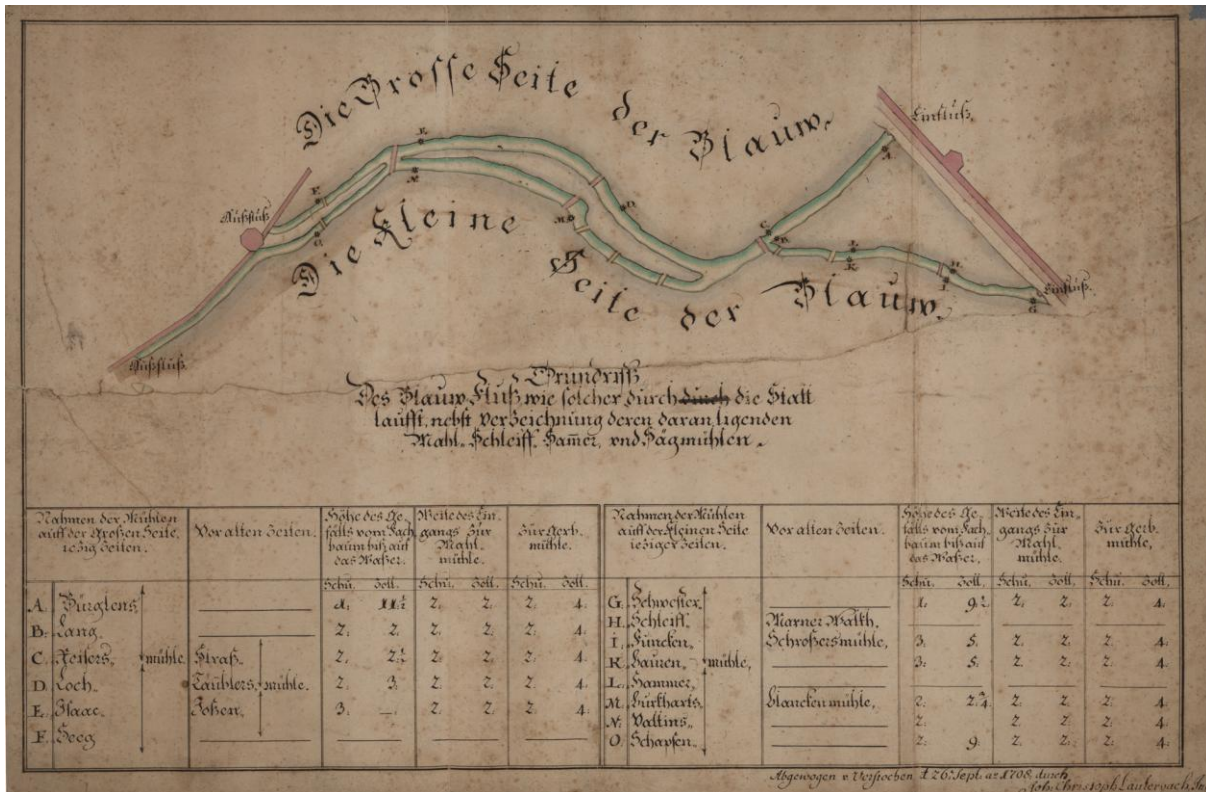 Die Grosse Seite der Blauw.
Einfluß.
A.
Außfluß.
F.
E.
N.
O.
D.
M.
C.
B.
L.
K.
H.
I.
G.
Einfluß.
Die Kleine Seite der Blauw.
Außfluß.
Grundriß
Des Blauw Fluß, wie solcher durch durch die Statt
laufft, nebst Verzeichnung deren daran ligenden
Mahl- Schleiff- Ham̄er- vnd Sägmühlen.
Nahmen der Mühlen auff der Großen Seite, iezig Zeiten. Vor alten Zeiten. Höhe des Gefälls vom Fachbaum biß auf das Waßer. Weite des Eingangs zur Mahlmühle. Zur Gerbmühle.
Schu. Zoll. Schu. Zoll. Schu. Zoll.
A. Bürglens 1. 11½ 2. 2. 2. 4.
B. Lang 2. 2. 2. 2. 2. 4.
C. Reiters mühle Straß 2. 2½ 2. 2. 2. 4.
D. Loch Täublers mühle. 2. 3. 2. 2. 2. 4.
E. Isaac 3. 2. 2. 2. 4.
F. Seeg
Nahmen der Mühlen auff der Kleinen Seite ieziger Zeiten. Vor alten Zeiten. Höhe des Gefälls vom Fachbaum biß auf das Waßer. Weite des Eingangs zur Mahlmühle. Zur Gerbmühle.
Schu. Zoll. Schu. Zoll. Schu. Zoll.
G. Schwester 1. 9½ 2. 2. 2. 4.
H. Schleiff Marner Walkh.
I. Funcken Schroßersmühle, 3. 5. 2. 2. 2. 4.
K. Bauren mühle, 3. 5. 2. 2. 2. 4.
L. Hammer
M. Burkharts Blancken mühle, 2. 2¾ 2. 2. 2. 4.
N. Valtins 2. 2. 2. 2. 4.
O. Schapfen 2. 9. 2. 2. 2. 4.
Abgewogen v. Versprochen d. 26. Sept. aō 1708. durch
Joh. Christoph Lauterbach